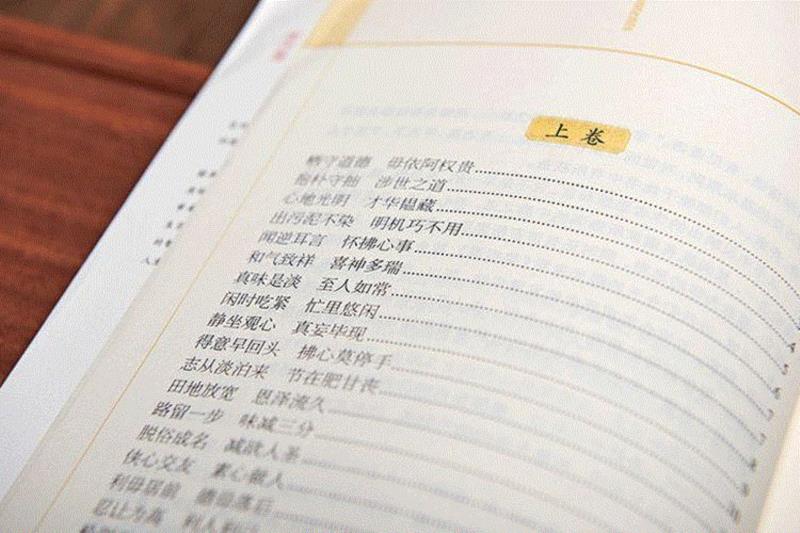 上卷
栖守道德 毋依阿权贵
抱朴守拙 涉世之道
心地光明 才华韫藏
出污泥不染 明机巧不用
闻逆耳言 怀拂心事
和气致祥 喜神多瑞
真味是淡 至人如常
闲时吃紧 忙里悠闲
静坐观心 真妄毕现
得意早回头 拂心莫停手
志从淡泊来 节在肥甘丧
田地放宽 恩泽流久
路留一步 味减三分
脱俗成名 减欲入圣
侠心交友 素心做人
利毋居前 德毋落后
忍让为高 利人利己